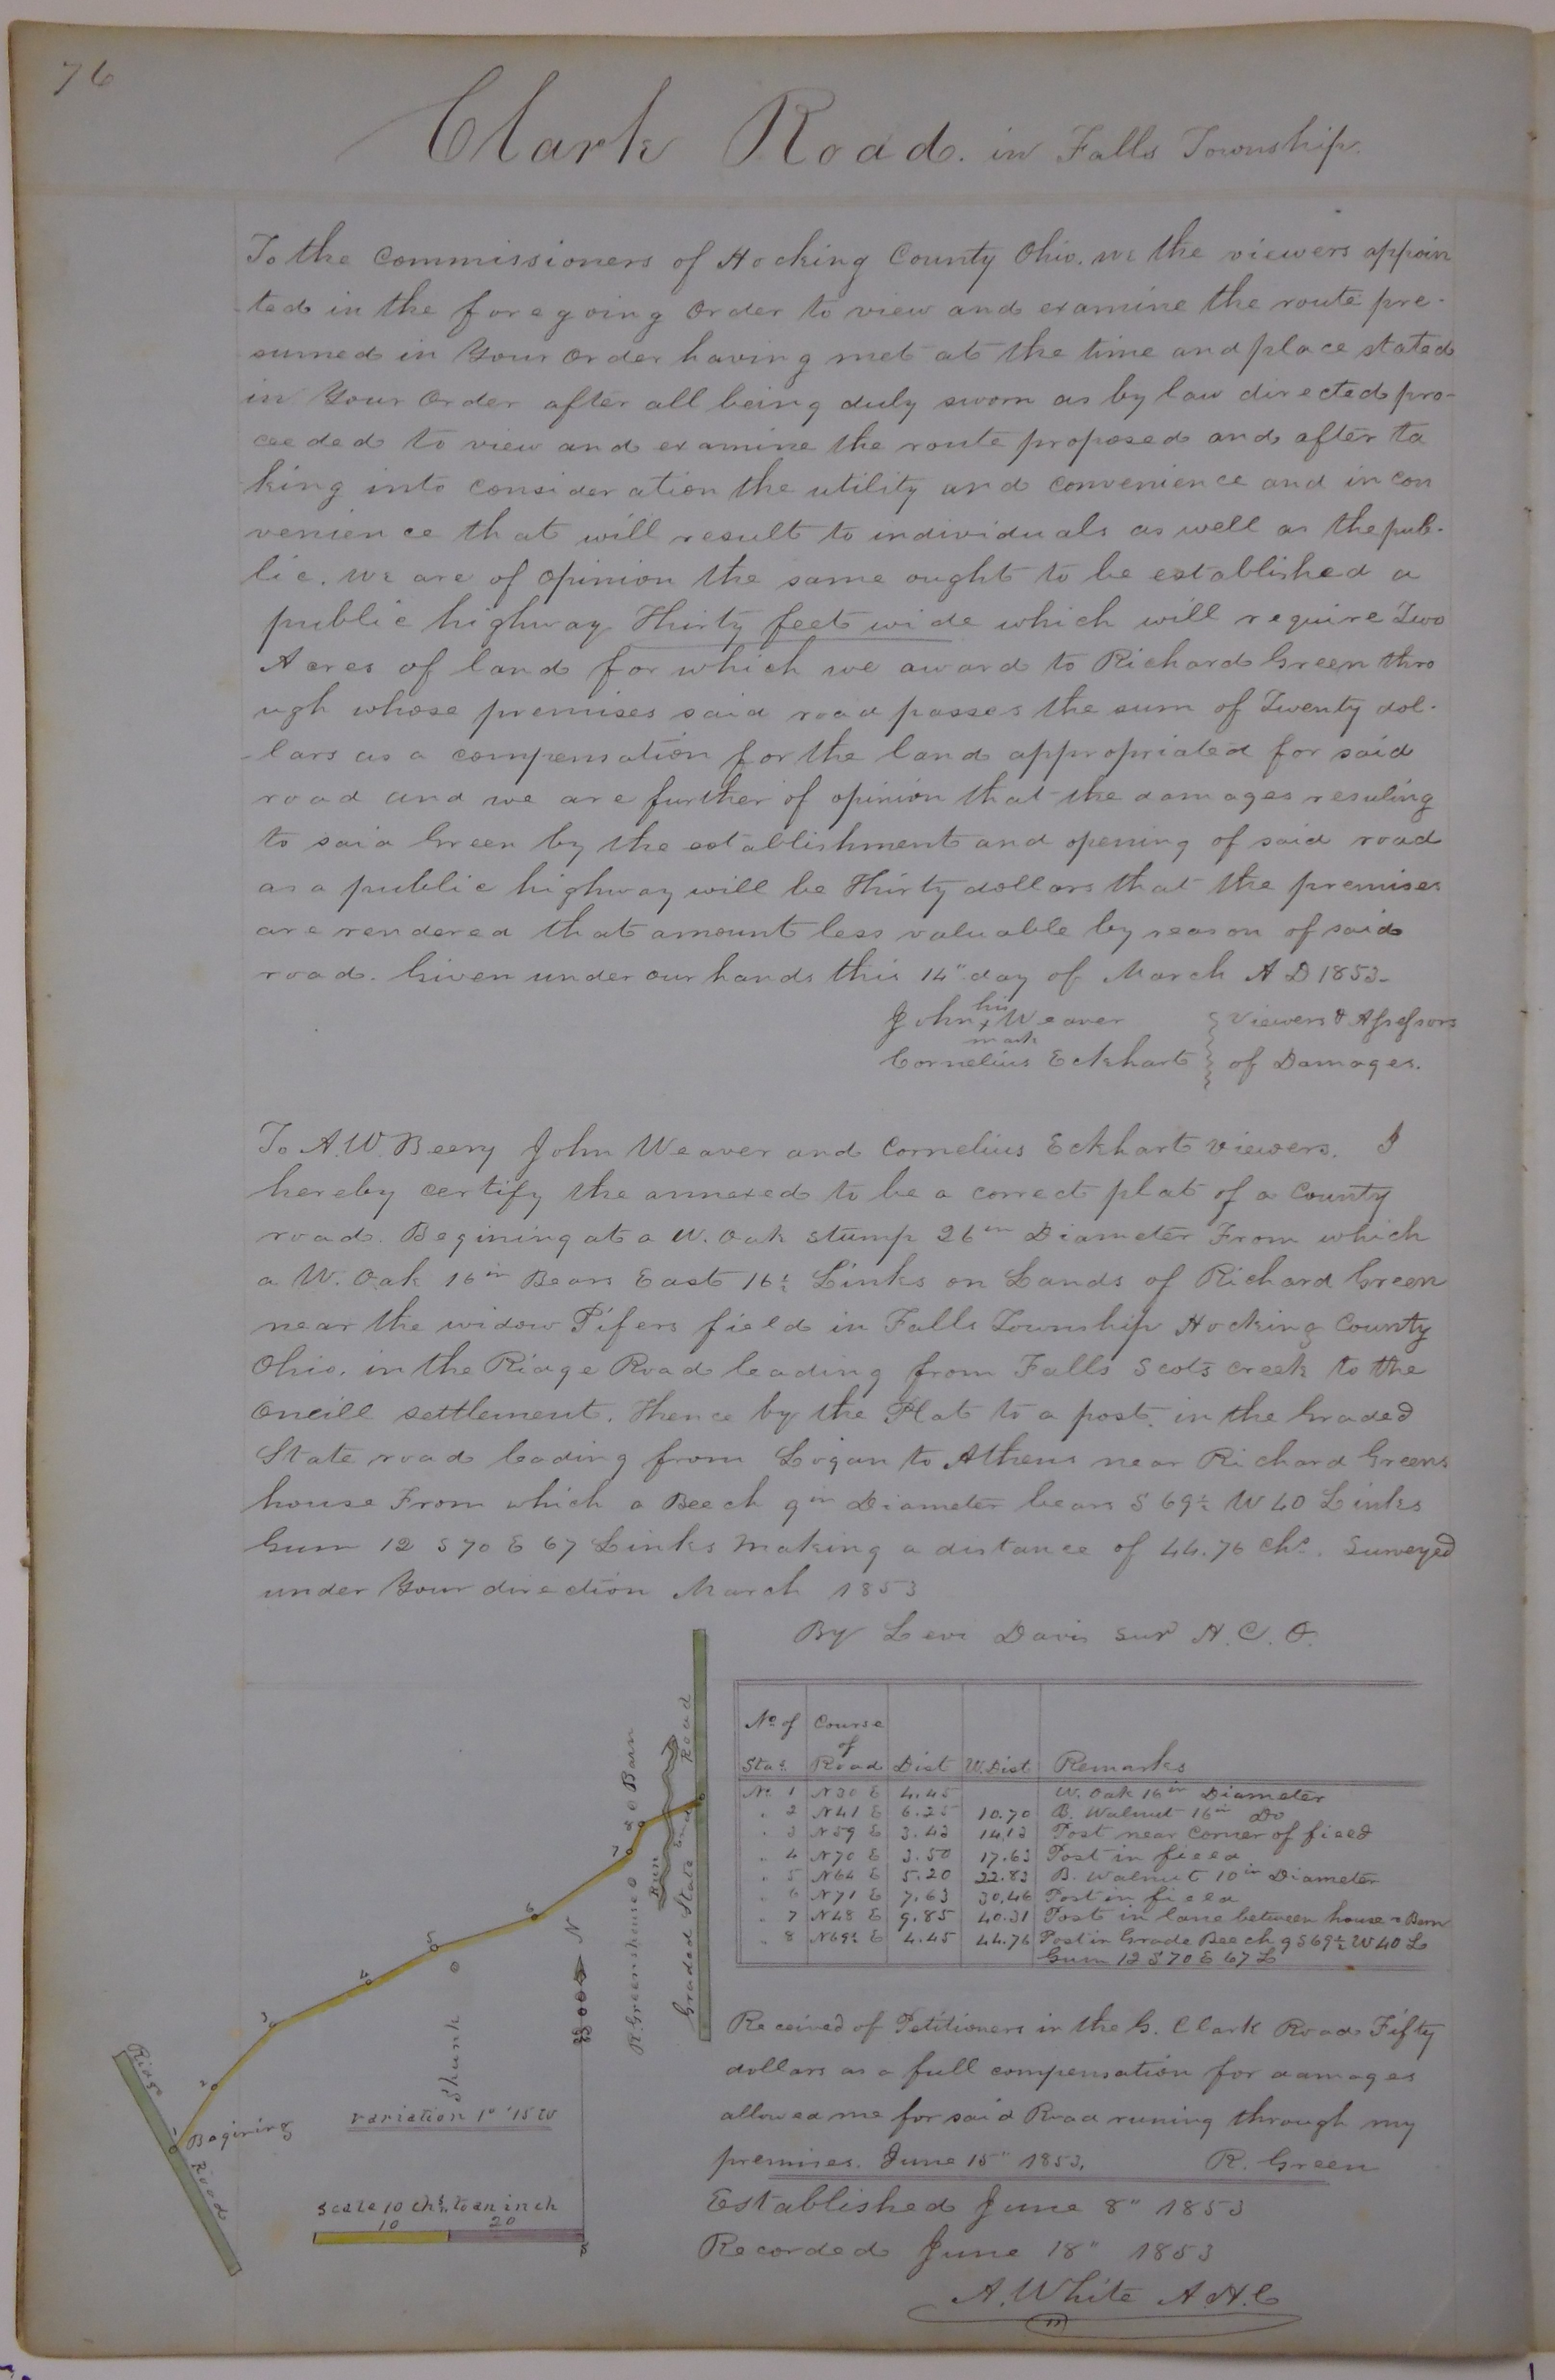 76
Clark Road. in Falls Township.
To the Commissioners of Hocking County Ohio. We the viewers appoin
ted in the foregoing Order to view and examine the route pre-
sumed in Your Order having met at the time and place stated
in Your Order after all being duly sworn as by law directed pro-
ceeded to view and examine the route proposed and after ta
king into consideration the utility and convenience and incon
venience that will result to individuals as well as the pub-
lic. We are of opinion the same ought to be established a
public highway Thirty feet wide which will require Two
Acres of land for which we award to Richard Green thro
ugh whose premises said road passes the sum of Twenty dol-
-lars as a compensation for the land appropriated for said
road and we are further of opinion that the damages resuling
to said Green by the establishment and opening of said road
as a public highway will be Thirty dollars that the premises
are rendered that amount less valuable by reason of said
road. Given under our hands this 14" day of March A D 1853-
his
John + Weaver } Viewers & Assessors
mark
Cornelius Eckhart } of Damages.
To A.W. Beery John Weaver and Cornelius Eckhart viewers. I
hereby certify the annexed to be a correct plat of a County
road. Begining at a W. Oak stump 26 in Diameter From which
a W. Oak 16 in Bears East 16½ Links on Lands of Richard Green
near the widow Pifers field in Falls Township Hocking County
Ohio. in the Ridge Road leading from Falls Scots creek to the
Oneill settlement. Thence by the Plat to a post in the Graded
State road leading from Logan to Athens near Richard Greens
house From which a Beech 9 in Diameter bears S 69½ W 40 Links
Gum 12 S 70 E 67 Links Making a distance of 44.76 chs. Surveyed
under Your direction March 1853
By Levi Davis Sur H. C. O.
No of Stas. | Course of Road | Dist | W.Dist | Remarks
No. 1 | N 30 E | 4.45 | | W. Oak 16 in Diameter
" 2 | N 41 E | 6.25 | 10.70 | B. Walnut 16 in Do
" 3 | N 59 E | 3.43 | 14.13 | Post near Corner of field
" 4 | N 70 E | 3.50 | 17.63 | Post in field
" 5 | N 64 E | 5.20 | 22.83 | B. Walnut 10 in Diameter
" 6 | N 71 E | 7.63 | 30.46 | Post in field
" 7 | N 48 E | 9.85 | 40.31 | Post in lane between house & Barn
" 8 | N 69½ E | 4.45 | 44.76 | Post in Grade Beech 9 S 69½ W 40 L
Gum 12 S 70 E 67 L
Received of Petitioners in the G. Clark Road Fifty
dollars as a full compensation for damages
allowed me for said Road runing through my
premises. June 15" 1853. R. Green
Established June 8" 1853
Recorded June 18" 1853
A. White A.H.C
Barn
R. Greens house
Run
Graded State Road
End
N
Shunk
Ridge Road
Begining
1
2
3
4
5
6
7
8
variation 1° 15 W
Scale 10 chs. to an inch
10 20
S